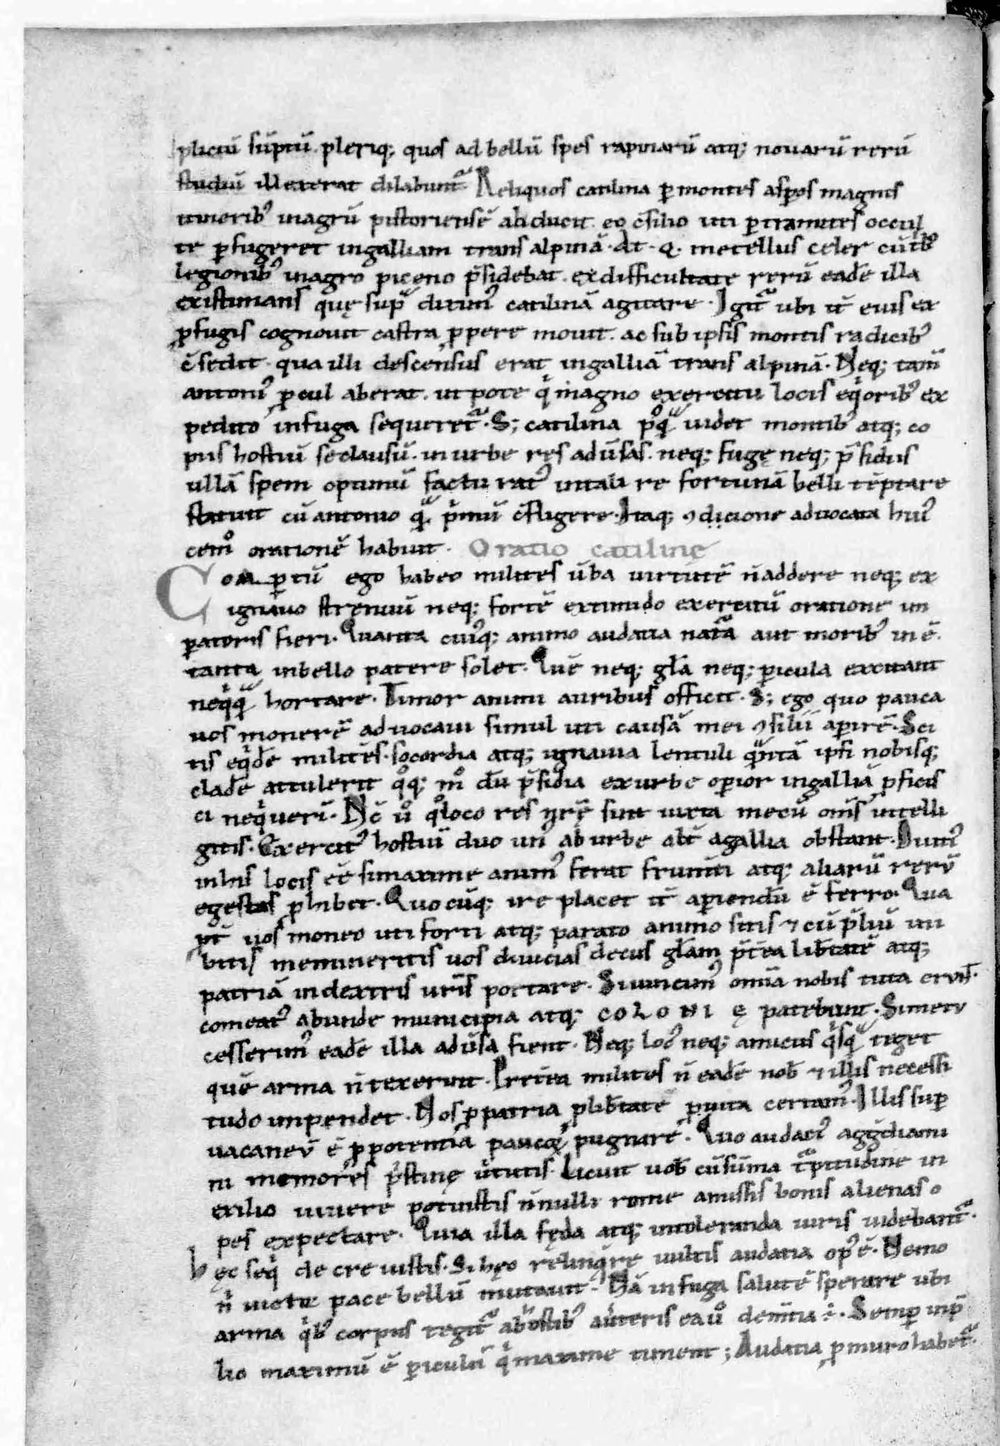 plicíu súptũ plerīq; quos ad bellũ spes rapinarũ atq; nouarũ rerũ
studiũ illexerat dilabunt᷑. Reliquos catilina p̱ montes asp̱os magnis
itinerib; inagrũ pistoriensẽ abducit. eo c̄silio uti p̱tramites occul
te p̱fugeret ingalliam trans alpinã. At. Q. metellus celer cũ trib;
legionib; inagro piceno p̄sidebat. exdifficultate rerũ eadẽ illa
existimans quę sup̄ diximꝰ catilinã agitare. Igit᷑ ubi it̄ eius ex
ꝑfugis cognouit castra ꝓpere mouit. ac sub ipsis montis radicib;
c̄sedit. qua illi descensus erat ingalliã trans alpinã. Neq; tam̄
antoniꝰ ꝓcul aberat. ut pote qͥ magno exercitu locis eqͦrib; ex
pedito infuga sequeret᷑. S; catilina pͦqᷓ uidet montib; atq; co
piis hostiũ seclausũ. inurbe res aduersas. neq; fugę neq; p̄sidiis
ullã spem optimũ factu ratꝰ intali re fortunã belli tẽptare
statuit cũ antonio qᷓ p̄mũ c̄fligere. Itaq; ꝯcicione aduocata huiꝰ
cemͦ orationẽ habuit. Oratio catiline
Com p̱tũ ego habeo milites ũba uirtutẽ n̄addere neq; ex
ignauo strenuũ neq; fortẽ extimido exercitũ oratione im
p̱atoris fieri. Quanta cuiꝰq; animo audatia natᷓa aut morib; in ẽ.
tanta inbello patere solet. Quẽ neq; gl̄a neq; p̱icula excitant
neqͥqᷓ hortare. Timor animi auribus officit. S; ego quo pauca
uos monerẽ aduocaui simul uti causã mei ꝯsilii ap̱irẽ. Sci
tis eqͥdẽ milites. socordia atq; ignauia lentuli qᷓntã ipsi nobisq;
cladẽ attulerit qͦq; mͦ dũ p̄sidia exurbe opperior ingalliã ꝓficis
ci neqͥueri. Nc̄ uͦ qͦ loco res nr̄ę sint iuxta mecũ om̄s intelli
gitis. Exercitꝰ hostiũ duo unꝰ ab urbe alt̄ agallia obstant. Diutiꝰ
inhis locis eẽ simaxime animꝰ ferat frum̄ti atq; aliarũ rerũ
egestas ꝓhibet. Quo cũq; ire placet it̄ ap̱iendũ ẽ ferro. Qua
pt̄ uos moneo uti forti atq; parato animo sitis ⁊ cũ p̄liũ ini
bitis memineritis uos diuicias decus gl̄am p̄t̄ea lib̄tatẽ atq;
patriã indextris uris̄ portare. Siuincimꝰ omīa nobis tuta erūt.
comeatꝰ abunde municipia atq; COLONI ę patebunt. Simetu
cesserimꝰ eadẽ illa aduersa fient. Neq; locꝰ neq; amicus qͥsqᷓ teget
quẽ arma n̄ texerint. Preterea milites n̄ eadẽ nob̄ ⁊ illis necessi
tudo impendet. Nos ꝓpatria ꝓlib̄tate ꝓuita certamꝰ. Illis sup̱
uacaneũ ẽ ꝓpotentia paucoꝝ pugnare. Quo audaciꝰ aggrediami
ni memores p̄stinę uͥtutis. Licuit uob̄ cũsũma tᷓpitudine in
exilio uiuere potuistis n̄nulli rome amissis bonis alienas o
pes expectare. Quia illa fęda atq; intoleranda uiris uidebant᷑.
hęc seqͥ decreuistis. Si hęc relinqͥre uultis audatia opꝰ ẽ. Nemo
n̄ uictor pace bellũ mutauit. Nã infuga salutẽ sperare ubi
arma qͥb; corpus tegit᷑ ab hostib; auͥteris ea uͦ dem̄tia ẽ. Semp̱ inp̄
lio maximũ ẽ p̱iculũ qͥ maxime timent; Audatia ꝓmuro habet᷑.